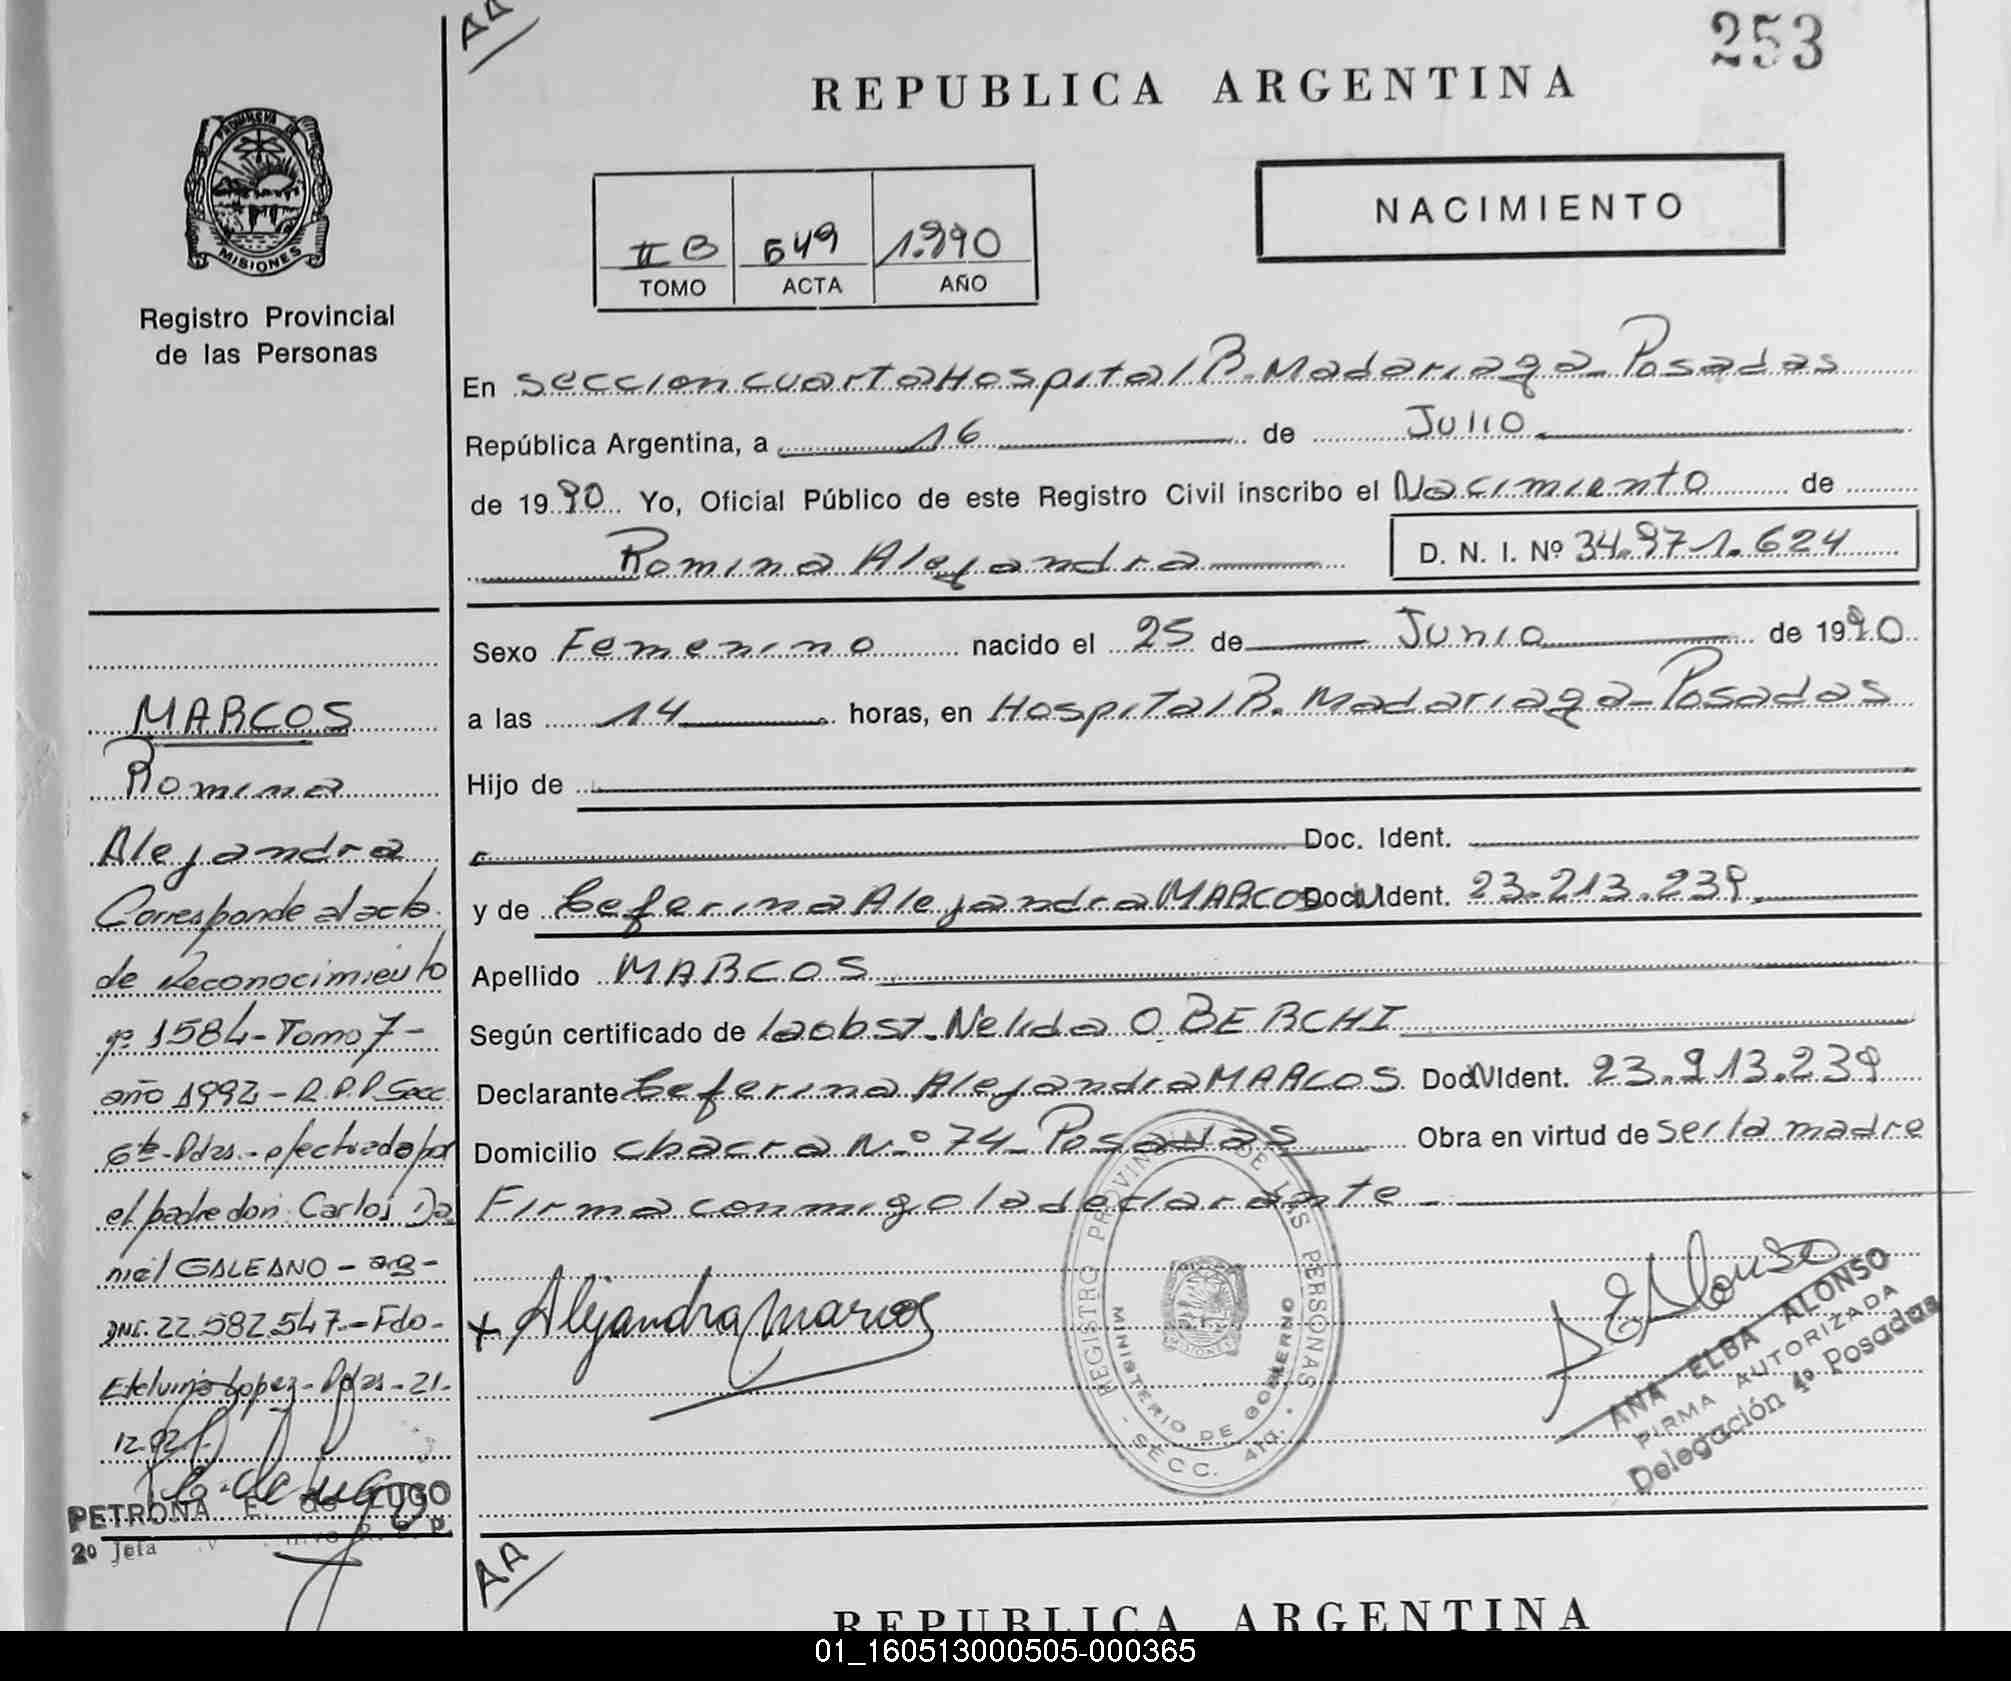 AA
253
REPUBLICA ARGENTINA
PROVINCIA DE
MISIONES
Registro Provincial
de las Personas
II B 549 1.990
TOMO ACTA AÑO
NACIMIENTO
En seccion cuarta Hospital R. Madariaga - Posadas
República Argentina, a 16 de Julio
de 1990 Yo, Oficial Público de este Registro Civil inscribo el Nacimiento de
Romina Alejandra D. N. I. Nº 34.971.624
Sexo Femenino nacido el 25 de Junio de 1990
a las 14 horas, en Hospital R. Madariaga - Posadas
Hijo de
Doc. Ident.
y de Ceferina Alejandra MARCOS Doc. Ident. 23.213.239
Apellido MARCOS
Según certificado de la obst. Nelida O. BERCHI
Declarante Ceferina Alejandra MARCOS Doc. Ident. 23.213.239
Domicilio chacra Nº 74 - Posadas Obra en virtud de ser la madre
Firma conmigo la declarante
Alejandra Marcos
REGISTRO PROVINCIAL DE LAS PERSONAS
MINISTERIO DE GOBIERNO
MISIONES
SECC. 4ta.
AEAlonso
ANA ELBA ALONSO
FIRMA AUTORIZADA
Delegación 4º Posadas
MARCOS
Romina
Alejandra
Corresponde al acta
de Reconocimiento
nº 1584 - Tomo 7 -
año 1992 - R.P.P. Secc
6ta - Pdas. - efectuado por
el padre don: Carlos Da
niel GALEANO - arg -
DNI. 22.582.547 - Fdo -
Etelvina Lopez - Pdas - 21 -
12-92 -
E. de Lugo
PETRONA E. de LUGO
2º Jefa
AA
REPUBLICA ARGENTINA
01_160513000505-000365